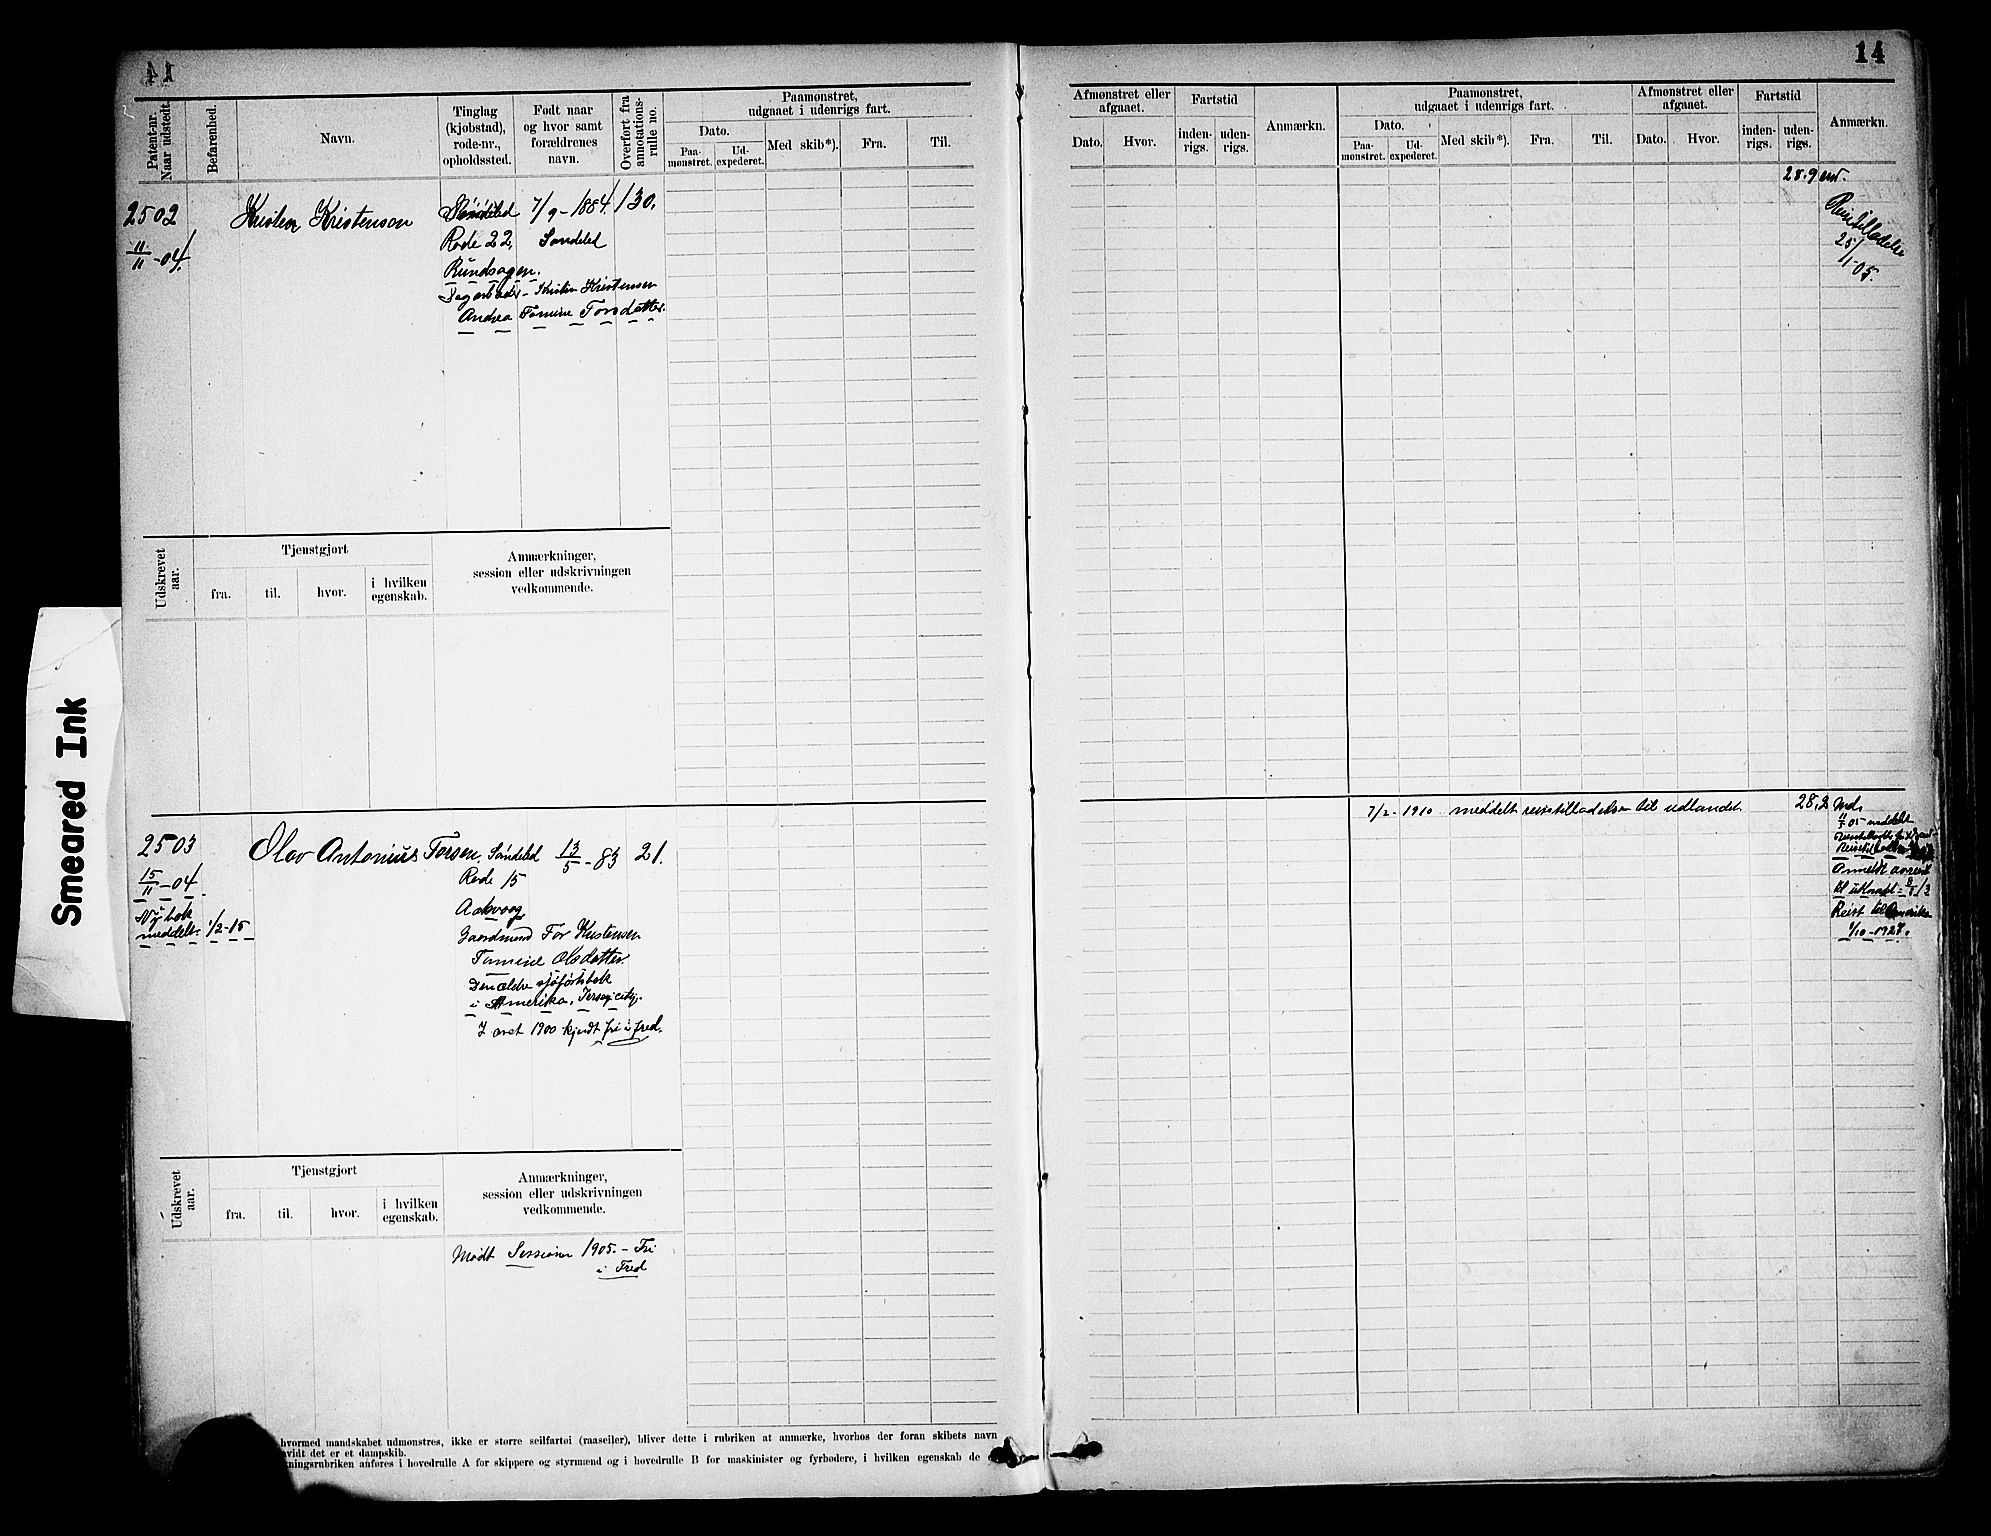 14
Patent-nr.
Naar udstedt.
Befarenhed.
Navn.
Tinglag
(kjøbstad),
rode-nr.,
opholdssted.
Født naar
og hvor samt
forældrenes
navn.
Overført fra
annotations-
rulle no.
Paamønstret,
udgaaet i udenrigs fart.
Dato.
Paa-
mønstret.
Ud-
expederet.
Med skib*).
Fra.
Til.
2502
11/11 - 04.
Kristen Kristensen
Søndeled
Rode 22,
Rundsagen.
7/9 - 1884.
Søndeled
130.
Kristen Kristensen
Andrea Tomine Torsdatter.
Udskrevet
aar.
Tjenstgjort
fra.
til.
hvor.
i hvilken
egenskab.
Anmærkninger,
session eller udskrivningen
vedkommende.
2503
15/11 - 04
Ny bok
meddelt 1/2-15
Olav Antonius Torsen.
Søndeled
Rode 15
Aakvaag
13/5 - 83
21.
Gaardmand Tor Kristensen
Tomine Olsdatter
Den ældre sjøfartsbok
i Amerika, Jersey city.
I aaret 1900 kjendt fri i fred.
Udskrevet
aar.
Tjenstgjort
fra.
til.
hvor.
i hvilken
egenskab.
Anmærkninger,
session eller udskrivningen
vedkommende.
Mødt Session 1905. - Fri
i Fred
hvormed mandskabet udmønstres, ikke er større seilfartøi (raaseiler), bliver dette i rubriken at anmærke, hvorhos der foran skibets navn
vidt det er et dampskib.
kningsrubriken anføres i hovedrulle A for skippere og styrmænd og i hovedrulle B for maskinister og fyrbødere, i hvilken egenskab de
14
Afmønstret eller
afgaaet.
Dato.
Hvor.
Fartstid
inden-
rigs.
uden-
rigs.
Anmærkn.
Paamønstret,
udgaaet i udenrigs fart.
Dato.
Paa-
mønstret.
Ud-
expederet.
Med skib*).
Fra.
Til.
Afmønstret eller
afgaaet.
Dato.
Hvor.
Fartstid
inden-
rigs.
uden-
rigs.
Anmærkn.
28.9
Reisetilladelse
25/1-05.
7/2 - 1910 meddelt reisetilladelse til udlandet
28,2 Md.
11/1 05 meddelt
Anmeldt avreist
til utlandet
Reist til Amerika
1/10-1927.
Smeared Ink